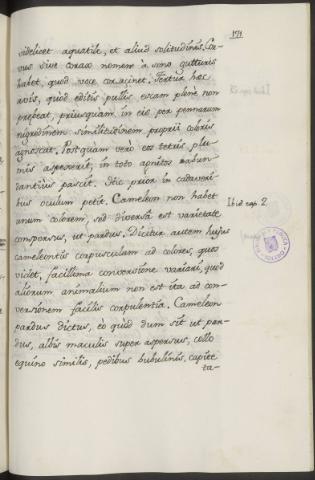 171
videlicet aquatile, et aliud solitudinis. Cor-
vus sive corax nomen à sono gutturis
habet, quod voce coracinet. Fertur hæc
avis, quòd editis pullis escam plenè non
præbeat, priusquam in eis per pennarum
nigridinem similitudinem proprii coloris
agnoscat. Postquam verò eos tetris plu-
mis aspexerit, in toto agnitos abun-
dantiùs pascit. Hic prior in cadaveri-
bus oculum petit. Cameleon non habet
unum colorem, sed diversa est varietate
consparsus, ut pardus. Dicitur autem hujus
cameleontis corpusculum ad colores, quos
videt, facillima conversione variari, quod
aliorum animalium non est ita ad con-
versionem facilis corpulentia. Cameleon
pardus dictus, eò quòd dum sit ut par-
dus, albis maculis super aspersus, collo
equino similis, pedibus bubulinis, capite
ta-
Ibid cap. 2